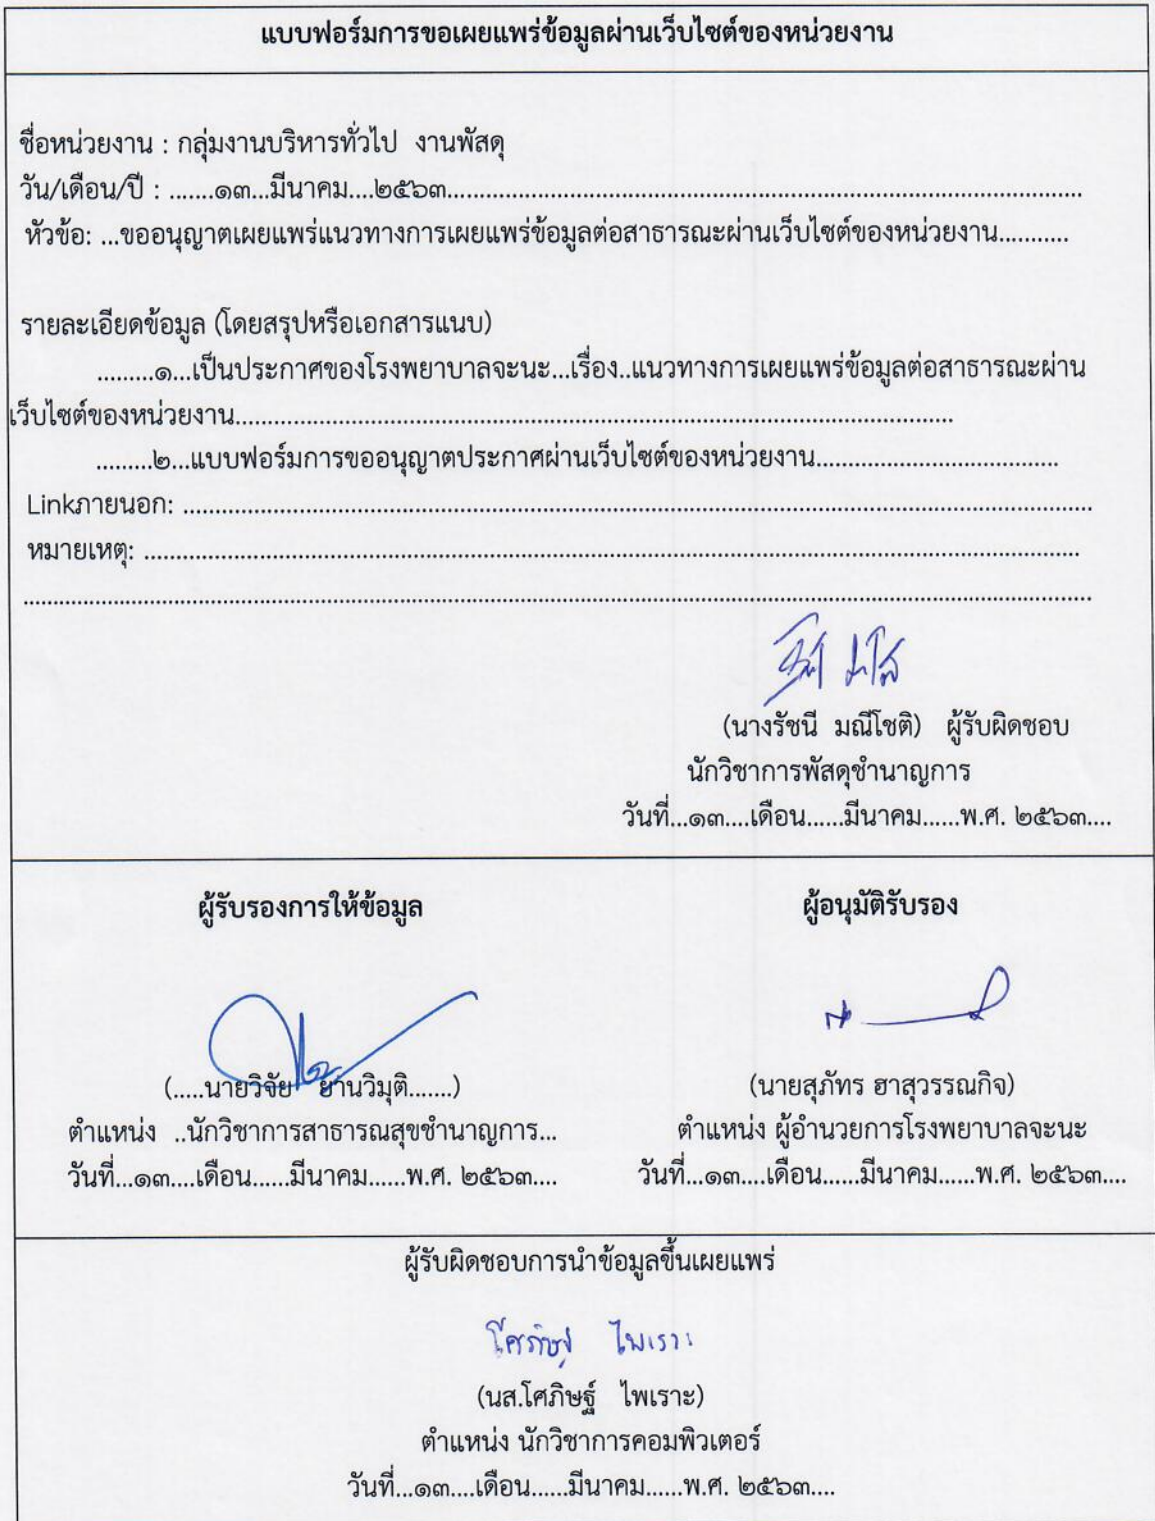 แบบฟอร์มการขอเผยแพร่ข้อมูลผ่านเว็บไซต์ของหน่วยงาน
ชื่อหน่วยงาน : กลุ่มงานบริหารทั่วไป งานพัสดุ
วัน/เดือน/ปี : .......๑๓...มีนาคม....๒๕๖๓..........
หัวข้อ: ...ขออนุญาตเผยแพร่แนวทางการเผยแพร่ข้อมูลต่อสาธารณะผ่านเว็บไซต์ของหน่วยงาน...........
รายละเอียดข้อมูล (โดยสรุปหรือเอกสารแนบ)
.........๑...เป็นประกาศของโรงพยาบาลจะนะ...เรื่อง..แนวทางการเผยแพร่ข้อมูลต่อสาธารณะผ่าน
เว็บไซต์ของหน่วยงาน..........
.........๒...แบบฟอร์มการขออนุญาตประกาศผ่านเว็บไซต์ของหน่วยงาน..........
Linkภายนอก: ..........
หมายเหตุ: ..........
(นางรัชนี มณีโชติ) ผู้รับผิดชอบ
นักวิชาการพัสดุชำนาญการ
วันที่...๑๓....เดือน......มีนาคม......พ.ศ. ๒๕๖๓....
ผู้รับรองการให้ข้อมูล ผู้อนุมัติรับรอง
(.....นายวิจัย ยานวิมุติ.......) (นายสุภัทร ฮาสุวรรณกิจ)
ตำแหน่ง ..นักวิชาการสาธารณสุขชำนาญการ... ตำแหน่ง ผู้อำนวยการโรงพยาบาลจะนะ
วันที่...๑๓....เดือน......มีนาคม......พ.ศ. ๒๕๖๓.... วันที่...๑๓....เดือน......มีนาคม......พ.ศ. ๒๕๖๓....
ผู้รับผิดชอบการนำข้อมูลขึ้นเผยแพร่
โศภิษฐ์ ไพเราะ
(นส.โศภิษฐ์ ไพเราะ)
ตำแหน่ง นักวิชาการคอมพิวเตอร์
วันที่...๑๓....เดือน......มีนาคม......พ.ศ. ๒๕๖๓....